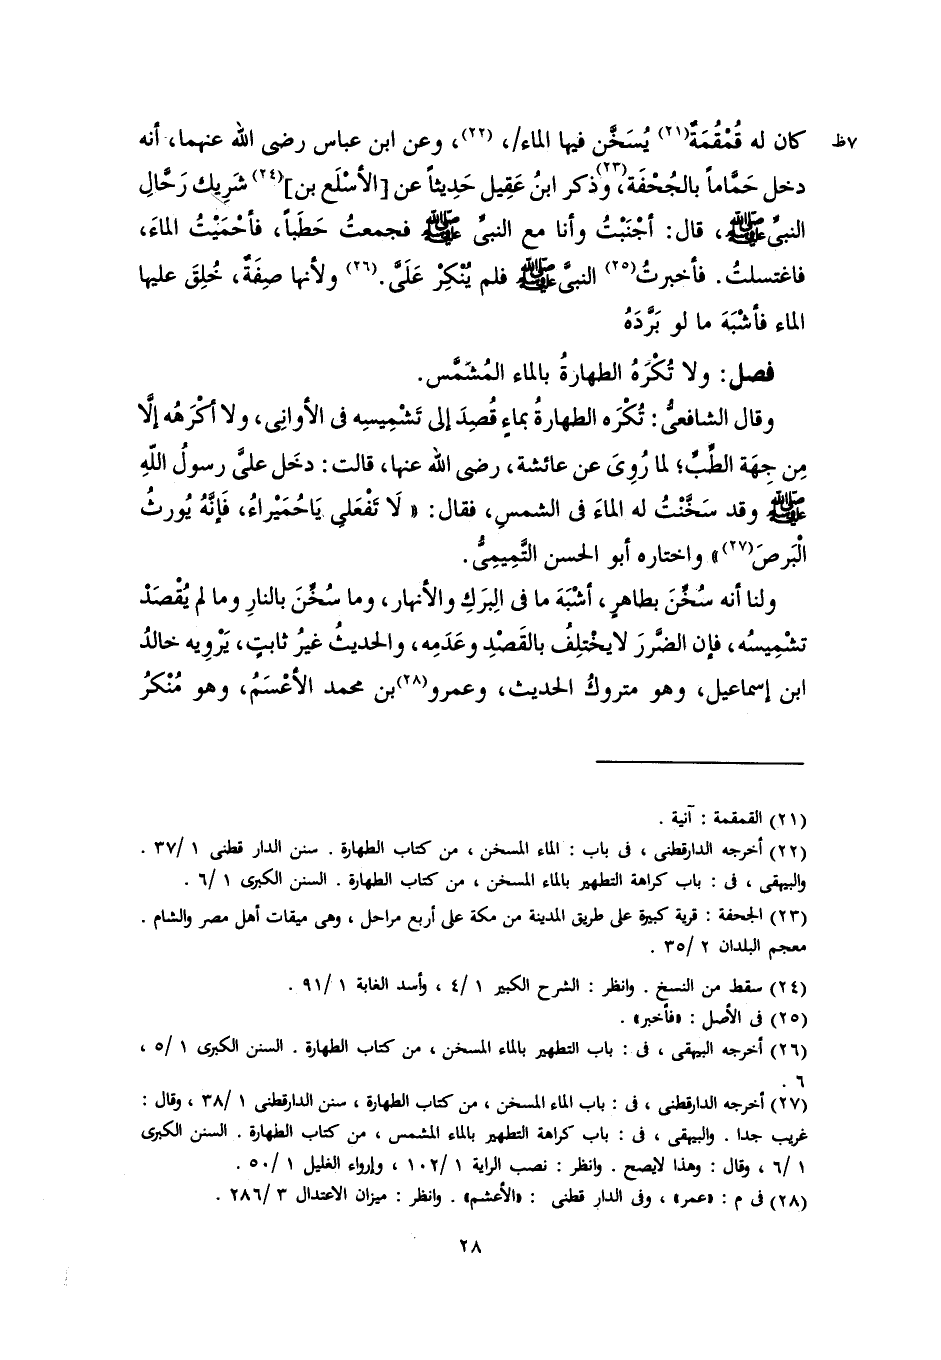 ٧ظ كان له قُمْقُمَةٌ(٢١) يُسَخَّن فيها الماء/، (٢٢)، وعن ابن عباس رضى الله عنهما، أنه
دخل حَمَّاماً بالجُحْفَة(٢٣)، وذكر ابنُ عَقِيل حَدِيثاً عن [الأسْلَع بن](٢٤) شَرِيك رَحَّالِ
النبىِّ ﷺ، قال: أجْنَبْتُ وأنا مع النبىِّ ﷺ فجمعتُ حَطَباً، فأحْمَيْتُ الماءَ،
فاغتسلتُ. فأخبرتُ(٢٥) النبىَّ ﷺ فلم يُنْكِرْ عَلَىَّ.(٢٦) ولأنها صِفَةٌ، خُلِقَ عليها
الماء فأشْبَهَ ما لو بَرَّدَهُ
فصل: ولا تُكْرَهُ الطهارةُ بالماء المُشَمَّس.
وقال الشافعىُّ: تُكْرَه الطهارةُ بماءٍ قُصِدَ إلى تَشْمِيسِه فى الأوانِى، ولا أكْرَهُه إلَّا
مِن جِهَة الطِّبِّ؛ لما رُوِىَ عن عائشة، رضى الله عنها، قالت: دخَل علىَّ رسولُ اللهِ
ﷺ وقد سَخَّنْتُ له الماءَ فى الشمسِ، فقال: «لَا تَفْعَلِى يَاحُمَيْراءُ، فَإنَّهُ يُورثُ
الْبَرصَ(٢٧)» واختاره أبو الحسن التَّمِيمِىُّ.
ولنا أنه سُخِّنَ بطاهرٍ، أشْبَهَ ما فى البِرَكِ والأنهار، وما سُخِّنَ بالنارِ وما لم يُقْصَدْ
تشْمِيسُه، فإن الضَّرَرَ لايخْتلِفُ بالقَصْدِ وعَدَمِه، والحديثُ غيرُ ثابتٍ، يَرْوِيه خالدُ
ابن إسماعيل، وهو متروكُ الحديث، وعمرو(٢٨) بن محمد الأعْسَمُ، وهو مُنْكرُ
(٢١) القمقمة : آنية .
(٢٢) أخرجه الدارقطنى ، فى باب : الماء المسخن ، من كتاب الطهارة . سنن الدار قطنى ١ /٣٧ .
والبيهقى ، فى : باب كراهة التطهير بالماء المسخن ، من كتاب الطهارة . السنن الكبرى ١ /٦ .
(٢٣) الجحفة : قرية كبيرة على طريق المدينة من مكة على أربع مراحل ، وهى ميقات أهل مصر والشام .
معجم البلدان ٢ /٣٥ .
(٢٤) سقط من النسخ . وانظر : الشرح الكبير ١ /٤ ، وأسد الغابة ١ /٩١ .
(٢٥) فى الأصل : «فأخبر» .
(٢٦) أخرجه البيهقى ، فى : باب التطهير بالماء المسخن ، من كتاب الطهارة . السنن الكبرى ١ /٥ ،
٦ .
(٢٧) أخرجه الدارقطنى ، فى : باب الماء المسخن ، من كتاب الطهارة ، سنن الدارقطنى ١ /٣٨ ، وقال :
غريب جدا . والبيهقى ، فى : باب كراهة التطهير بالماء المشمس ، من كتاب الطهارة . السنن الكبرى
١ /٦ ، وقال : وهذا لايصح . وانظر : نصب الراية ١ /١٠٢ ، وإرواء الغليل ١ /٥٠ .
(٢٨) فى م : «عمر» ، وفى الدار قطنى : «الأعشم» . وانظر : ميزان الاعتدال ٣ /٢٨٦ .
٢٨